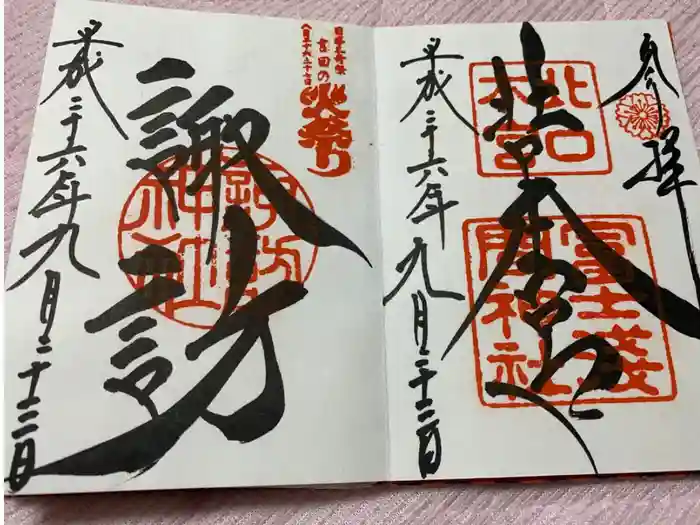 参拝
北口
本宮
冨士浅
間神社
北口本宮
平成二十六年九月二十三日
日本三奇祭
吉田の
火祭り
八月二十六二十七日
諏訪
諏訪
神社
平成二十六年九月二十三日